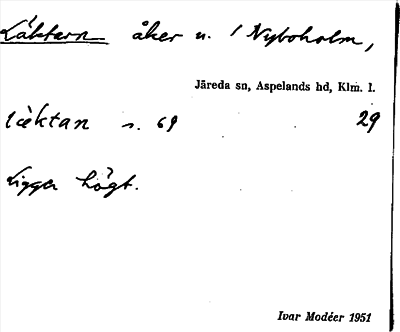 Läktarn åker u. 1 Nyboholm,
Järeda sn, Aspelands hd, Klm. l.
läktan s. 69 29
Ligger högt.
Ivar Modéer 1951